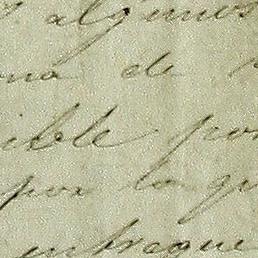 algunos
na de
ible por
por lo q
entregue